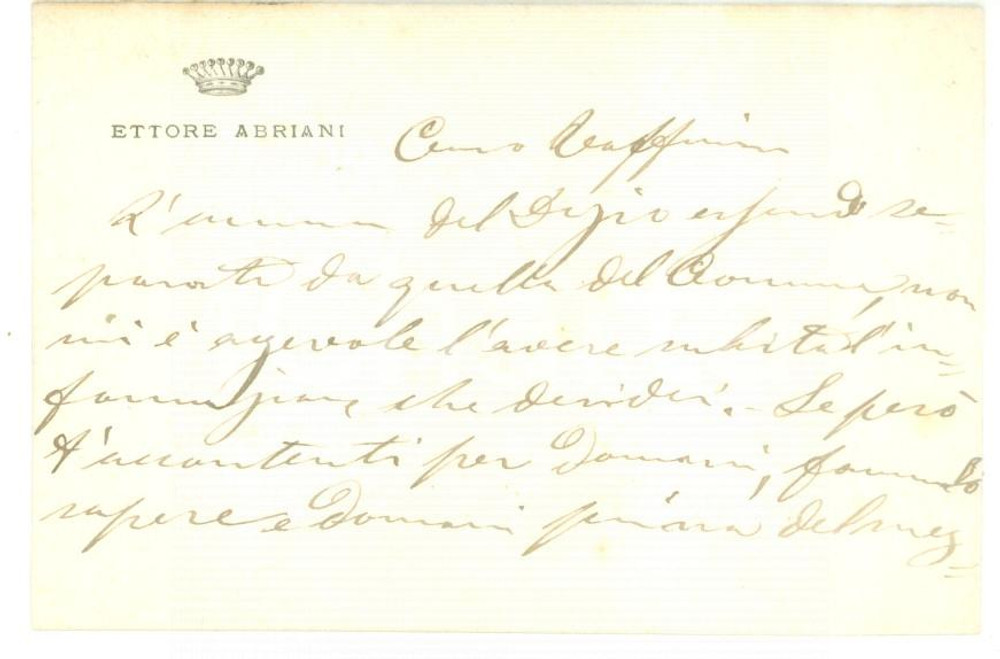 ETTORE ABRIANI
Caro
L'annona del Dazio essendo se=
parata da quella del Comune, non
mi è agevole l'avere subito l'in=
formazione che desideri. - Se però
t'accontenti per domani, fammelo
sapere e domani prima del mez=